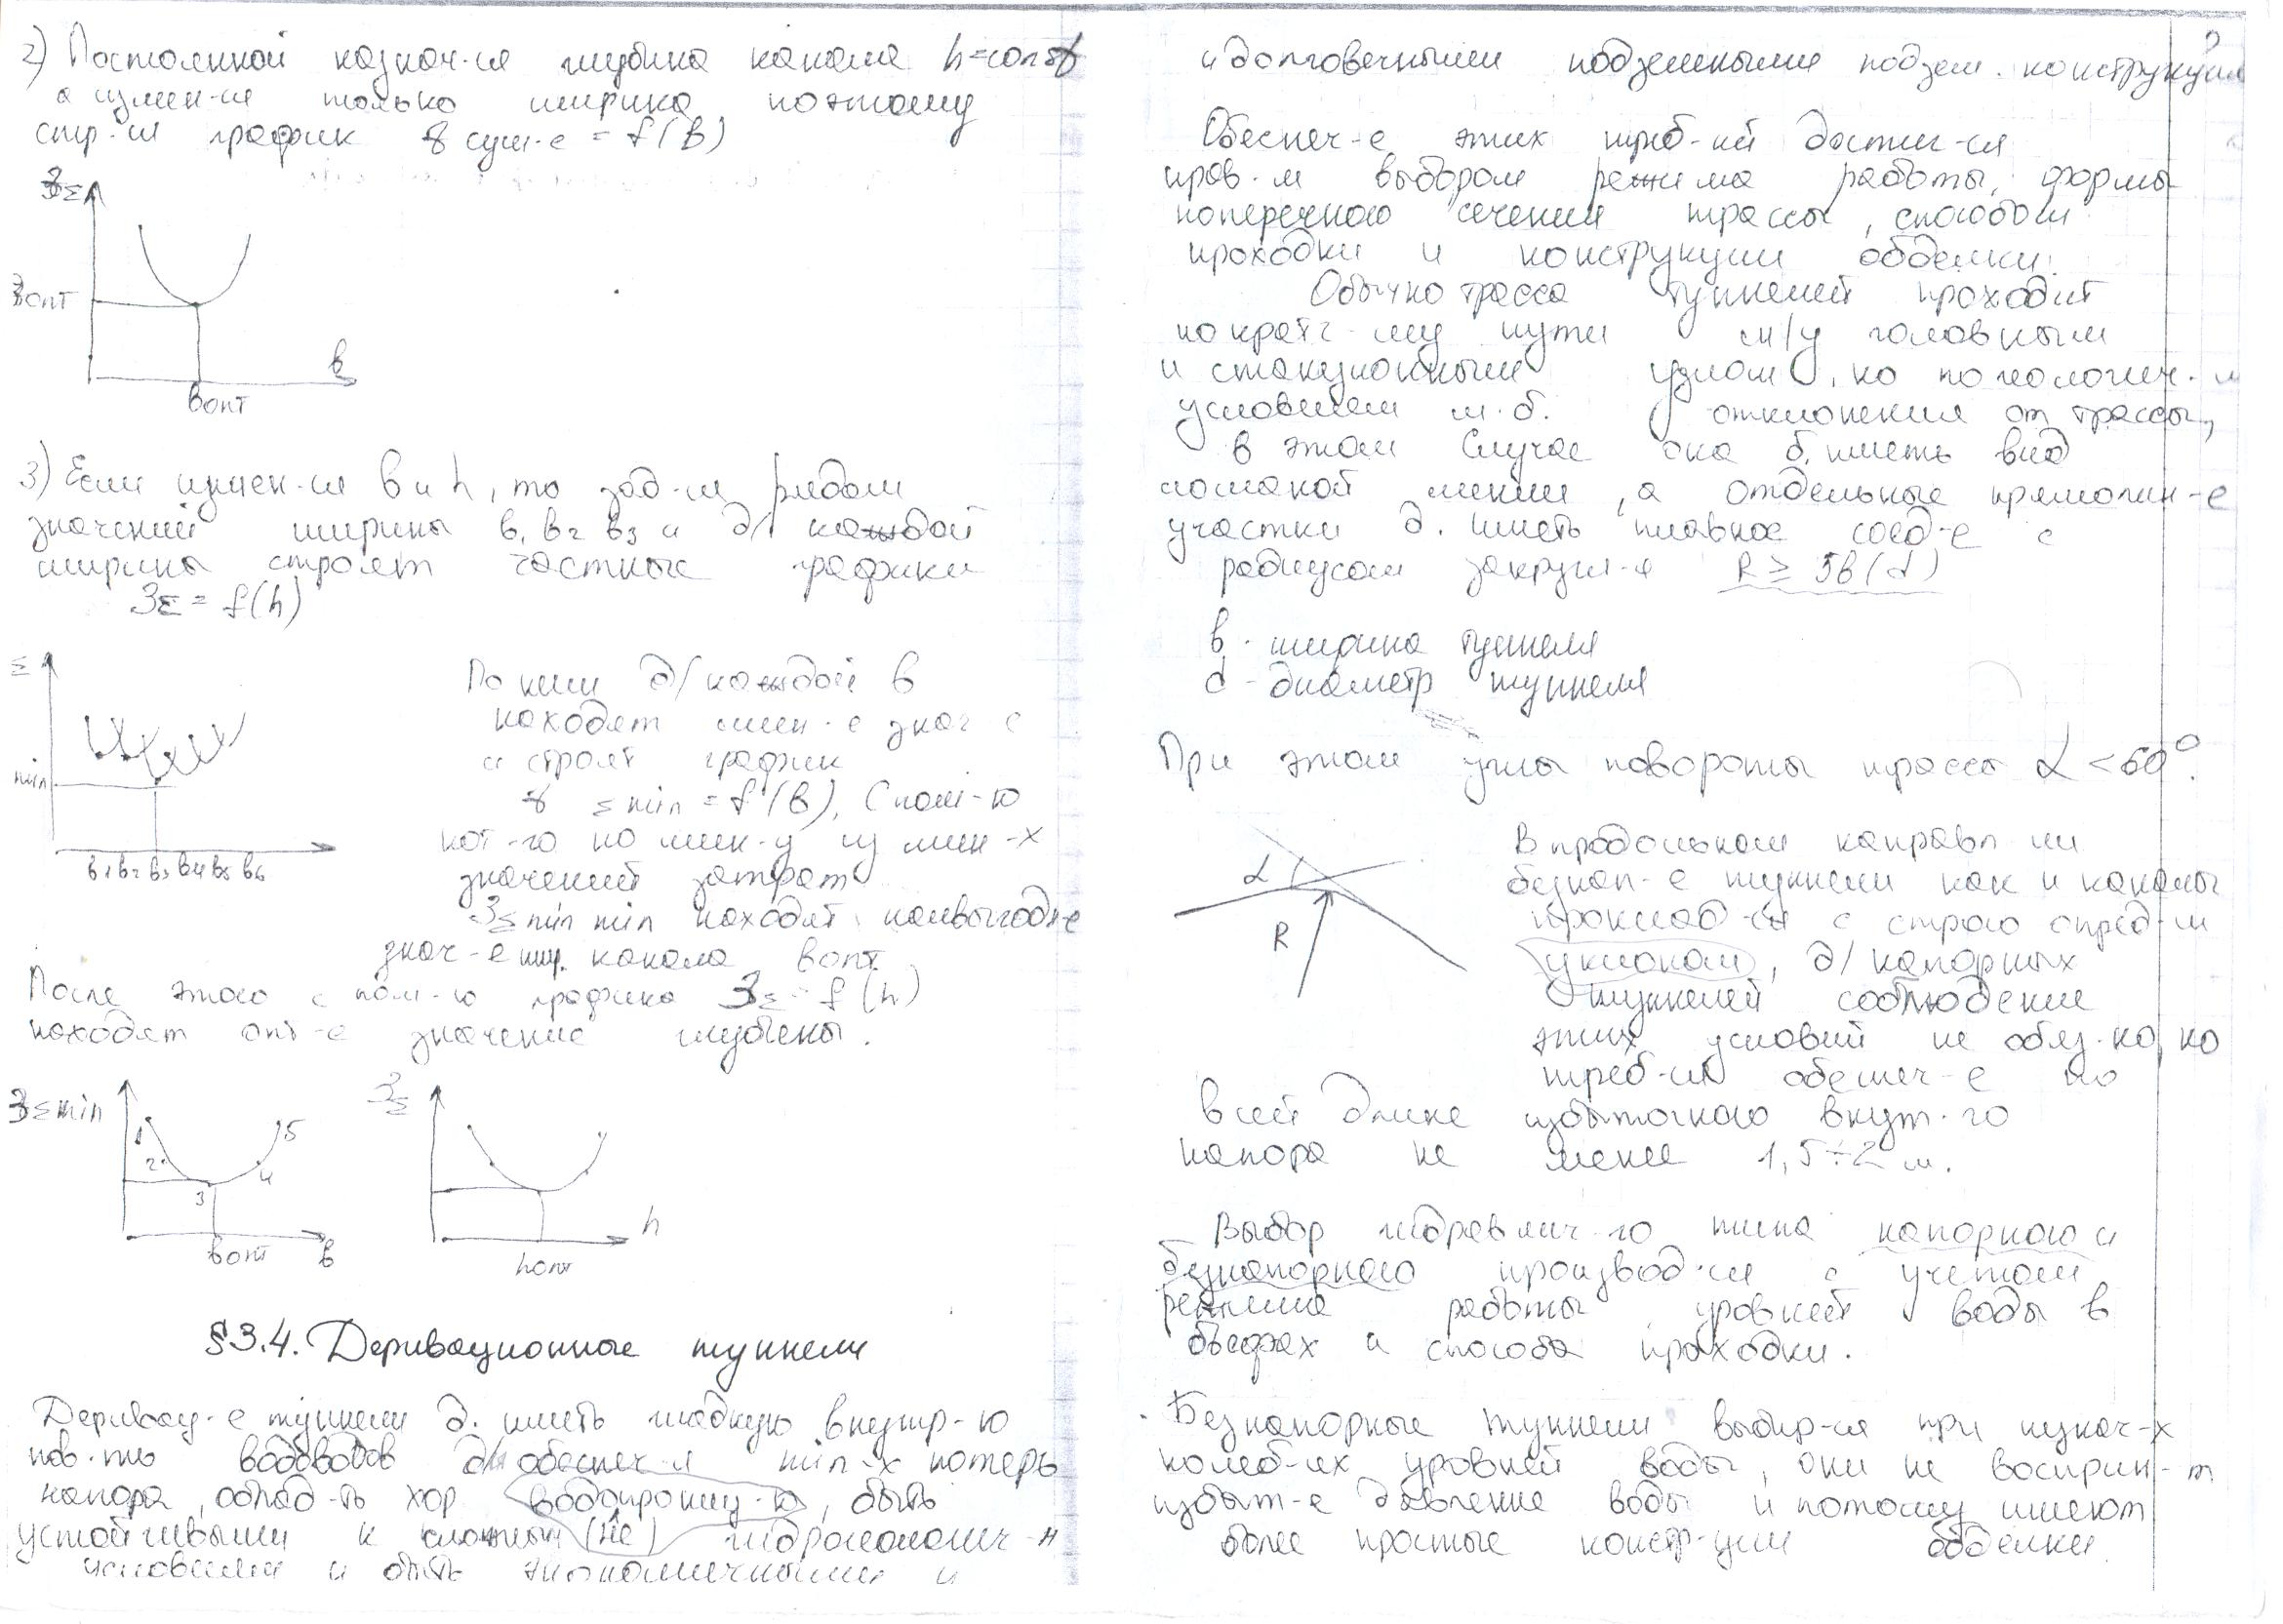 2) Постоянной назнач-ся глубина канала h=const
а измен-ся только ширина поэтому
стр-ся график З сум-е = f(B)
ЗΣ
Зопт
в
вопт
3) Если измен-ся в и h, то зад-ся рядом
значений ширины в1 в2 в3 и д/ каждой
ширины строят частные графики
ЗΣ = f(h)
Σ
min
в1 в2 в3 в4 в5 в6
По ним д/каждой в
находят мин-е знач
и строят график
З Σ min = f(B), С пом-ю
кот-го по мин-у из мин-х
значений затрат
ЗΣ min min находят наивыгодн-е
знач-е шир. канала вопт
После этого с пом-ю графика ЗΣ = f(h)
находят опт-е значение глубины.
ЗΣmin
1
2
3
4
5
вопт
в
ЗΣ
hопт
h
§3.4. Деривационные туннели
Деривац-е туннели д. иметь гладкую внутр-ю
пов-ть водоводов д/ обеспеч-я min-х потерь
напора, облад-ть хор водопрониц-ю, быть
устойчивыми к сложным (не) гидрогеологич-м
условиям и быть экономичными и
и долговечными подземными подзем. конструкциям
Обеспеч-е этих треб-ий достиг-ся
прав-м выбором режима работы, формы
поперечного сечения трассы, способом
проходки и конструкции обделки.
Обычно трасса туннелей проходит
по кратч-му пути м/у головным
и станционным узлом, но по геологич-м
условиям м.б. отклонения от трассы,
в этом случае она б. иметь вид
ломаной линии, а отдельные прямолин-е
участки д. иметь плавное соед-е с
радиусом закругл-я R ≥ 5в(d)
в - ширина туннеля
d - диаметр туннеля
При этом углы повороты трассы α < 60°.
α
R
В продольном направл-ии
безнап-е туннели как и каналы
проклад-ся с строго опред-м
уклоном, д/ напорных
туннелей соблюдение
этих условий не обяз-но, но
треб-ся обеспеч-е по
всей длине избыточного внут-го
напора не менее 1,5÷2 м.
Выбор гидравлич-го типа напорного и
безнапорного производ-ся с учетом
режима работы уровней воды в
бьефах и способа проходки.
Безнапорные туннели выбир-ся при незнач-х
колеб-ях уровней воды, они не восприн-т
избыт-е давление воды и потому имеют
более простые констр-ции обделки.